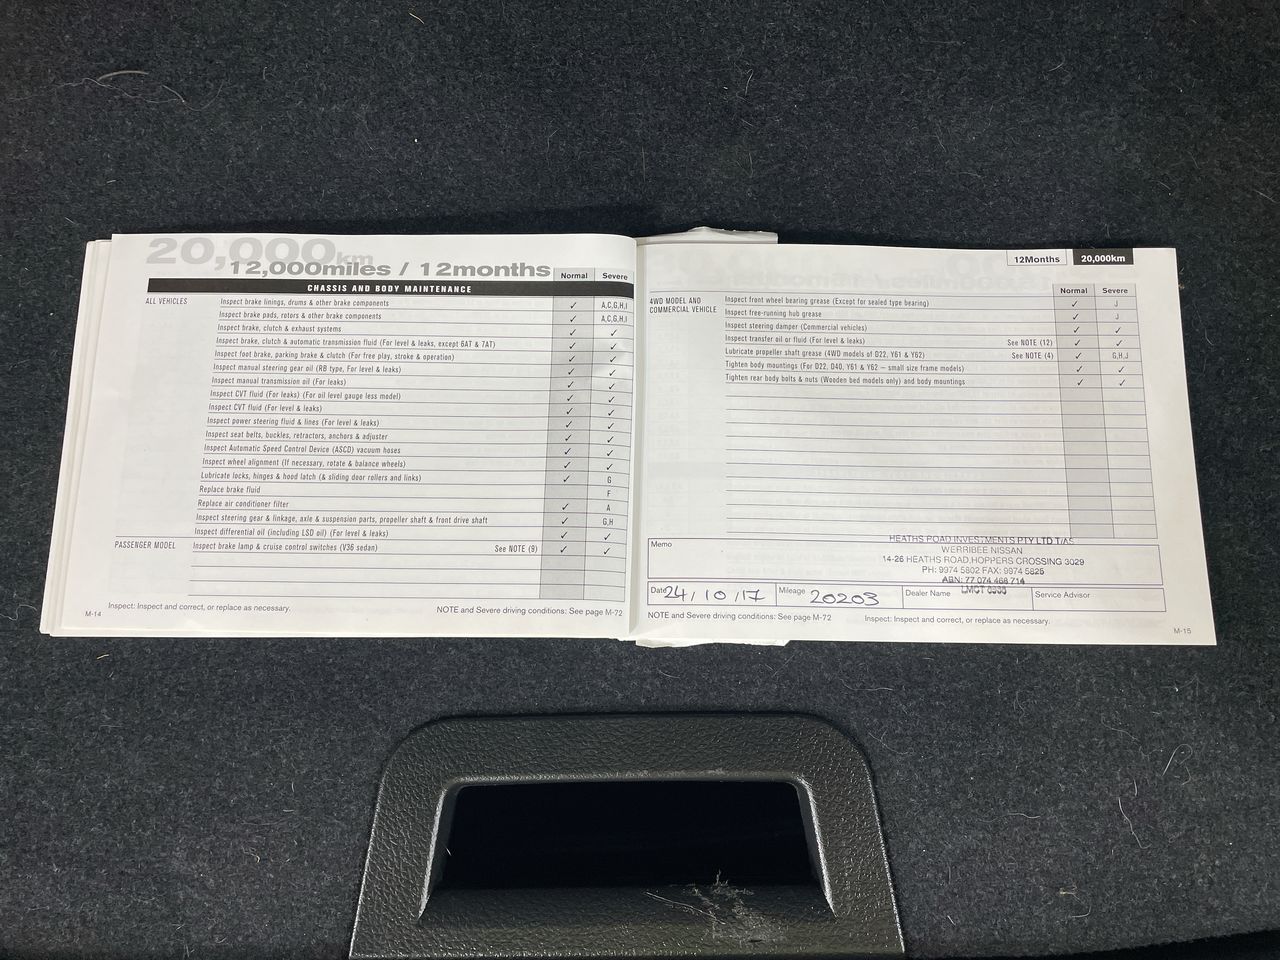 20,000km
12,000miles / 12months
Normal Severe
CHASSIS AND BODY MAINTENANCE
ALL VEHICLES Inspect brake linings, drums & other brake components ✓ A,C,G,H,I
Inspect brake pads, rotors & other brake components ✓ A,C,G,H,I
Inspect brake, clutch & exhaust systems ✓ ✓
Inspect brake, clutch & automatic transmission fluid (For level & leaks, except 6AT & 7AT) ✓ ✓
Inspect foot brake, parking brake & clutch (For free play, stroke & operation) ✓ ✓
Inspect manual steering gear oil (RB type, For level & leaks) ✓ ✓
Inspect manual transmission oil (For leaks) ✓ ✓
Inspect CVT fluid (For leaks) (For oil level gauge less model) ✓ ✓
Inspect CVT fluid (For level & leaks) ✓ ✓
Inspect power steering fluid & lines (For level & leaks) ✓ ✓
Inspect seat belts, buckles, retractors, anchors & adjuster ✓ ✓
Inspect Automatic Speed Control Device (ASCD) vacuum hoses ✓ ✓
Inspect wheel alignment (If necessary, rotate & balance wheels) ✓ ✓
Lubricate locks, hinges & hood latch (& sliding door rollers and links) ✓ G
Replace brake fluid F
Replace air conditioner filter ✓ A
Inspect steering gear & linkage, axle & suspension parts, propeller shaft & front drive shaft ✓ G,H
Inspect differential oil (including LSD oil) (For level & leaks) ✓ ✓
PASSENGER MODEL Inspect brake lamp & cruise control switches (V36 sedan) See NOTE (9) ✓ ✓
Inspect: Inspect and correct, or replace as necessary. NOTE and Severe driving conditions: See page M-72
M-14
12Months 20,000km
Normal Severe
4WD MODEL AND Inspect front wheel bearing grease (Except for sealed type bearing) ✓ J
COMMERCIAL VEHICLE Inspect free-running hub grease ✓ J
Inspect steering damper (Commercial vehicles) ✓ ✓
Inspect transfer oil or fluid (For level & leaks) See NOTE (12) ✓ ✓
Lubricate propeller shaft grease (4WD models of D22, Y61 & Y62) See NOTE (4) ✓ G,H,J
Tighten body mountings (For D22, D40, Y61 & Y62 – small size frame models) ✓ ✓
Tighten rear body bolts & nuts (Wooden bed models only) and body mountings ✓ ✓
Memo
HEATHS ROAD INVESTMENTS PTY LTD T/AS
WERRIBEE NISSAN
14-26 HEATHS ROAD,HOPPERS CROSSING 3029
PH: 9974 5802 FAX: 9974 5825
ABN: 77 074 468 714
LMCT 8333
Date 24/10/17 Mileage 20203 Dealer Name Service Advisor
NOTE and Severe driving conditions: See page M-72 Inspect: Inspect and correct, or replace as necessary.
M-15